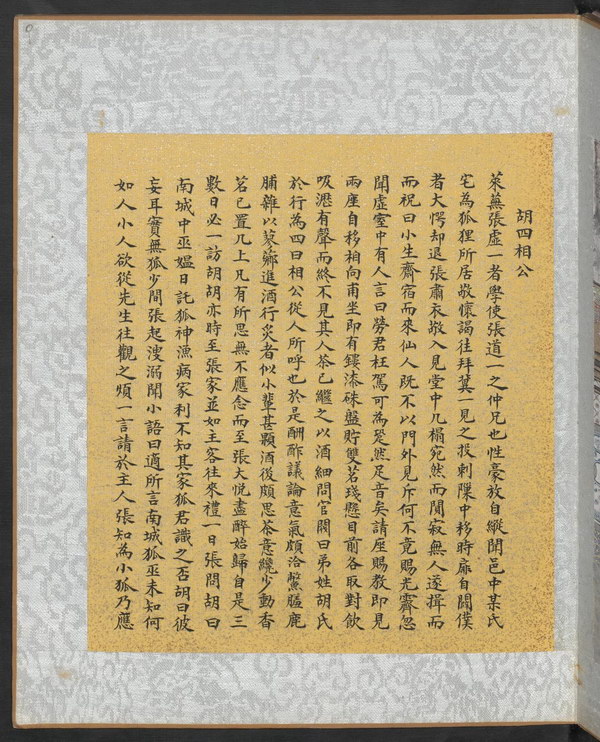 胡四相公
萊蕪張虛一者學使張道一之仲兄也性豪放自縱聞邑中某氏
宅為狐狸所居敬懷謁往拜冀一見之投刺隙中移時扉自闢僕
者大愕却退張肅衣敬入見堂中几榻宛然而闃寂無人遂揖而
祝曰小生齋宿而來仙人既不以門外見斥何不竟賜光霽忽
聞虛室中有人言曰勞君枉駕可為跫然足音矣請座賜教即見
兩座自移相向甫坐即有鏤漆硃盤貯雙茗琖懸目前各取對飲
吸瀝有聲而終不見其人茶已繼之以酒細問官閥曰弟姓胡氏
於行為四曰相公從人所呼也於是酬酢議論意氣頗洽鱉膳鹿
脯雜以薌蓼進酒行炙者似小輩甚夥酒後頗思茶意纔少動香
茗已置几上凡有所思無不應念而至張大悅盡醉始歸自是三
數日必一訪胡胡亦時至張家並如主客往來禮一日張問胡曰
南城中巫媼日託狐神漁病家利不知其家狐君識之否胡曰彼
妄耳實無狐少間張起溲溺聞小語曰適所言南城狐巫未知何
如人小人欲從先生往觀之煩一言請於主人張知為小狐乃應